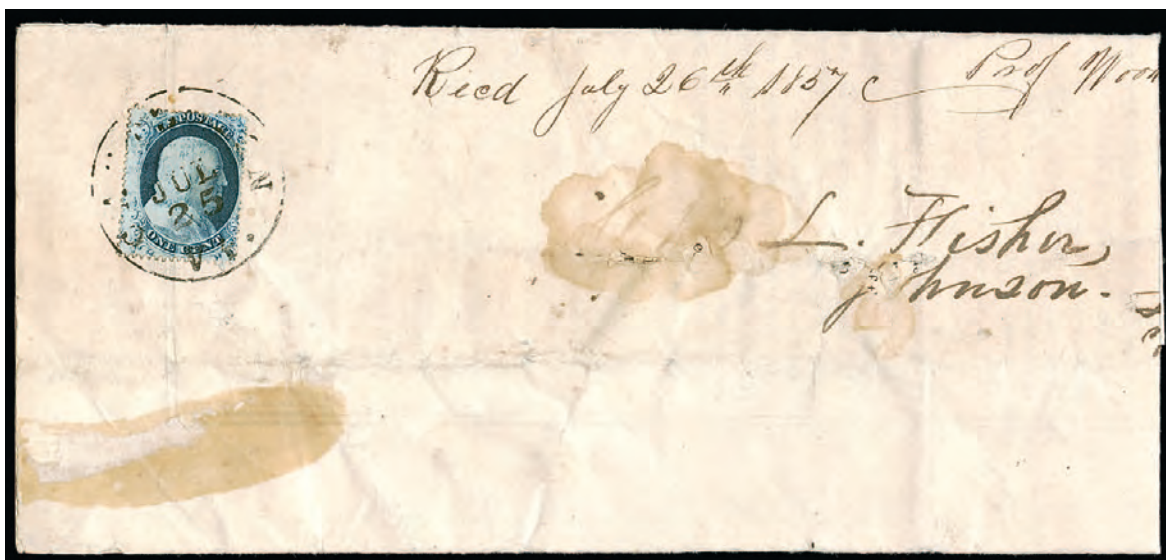 Recd July 26th 1857 Prof
U.S. POSTAGE
JUL
25
ONE CENT
N
L. Fisher,
Johnson.